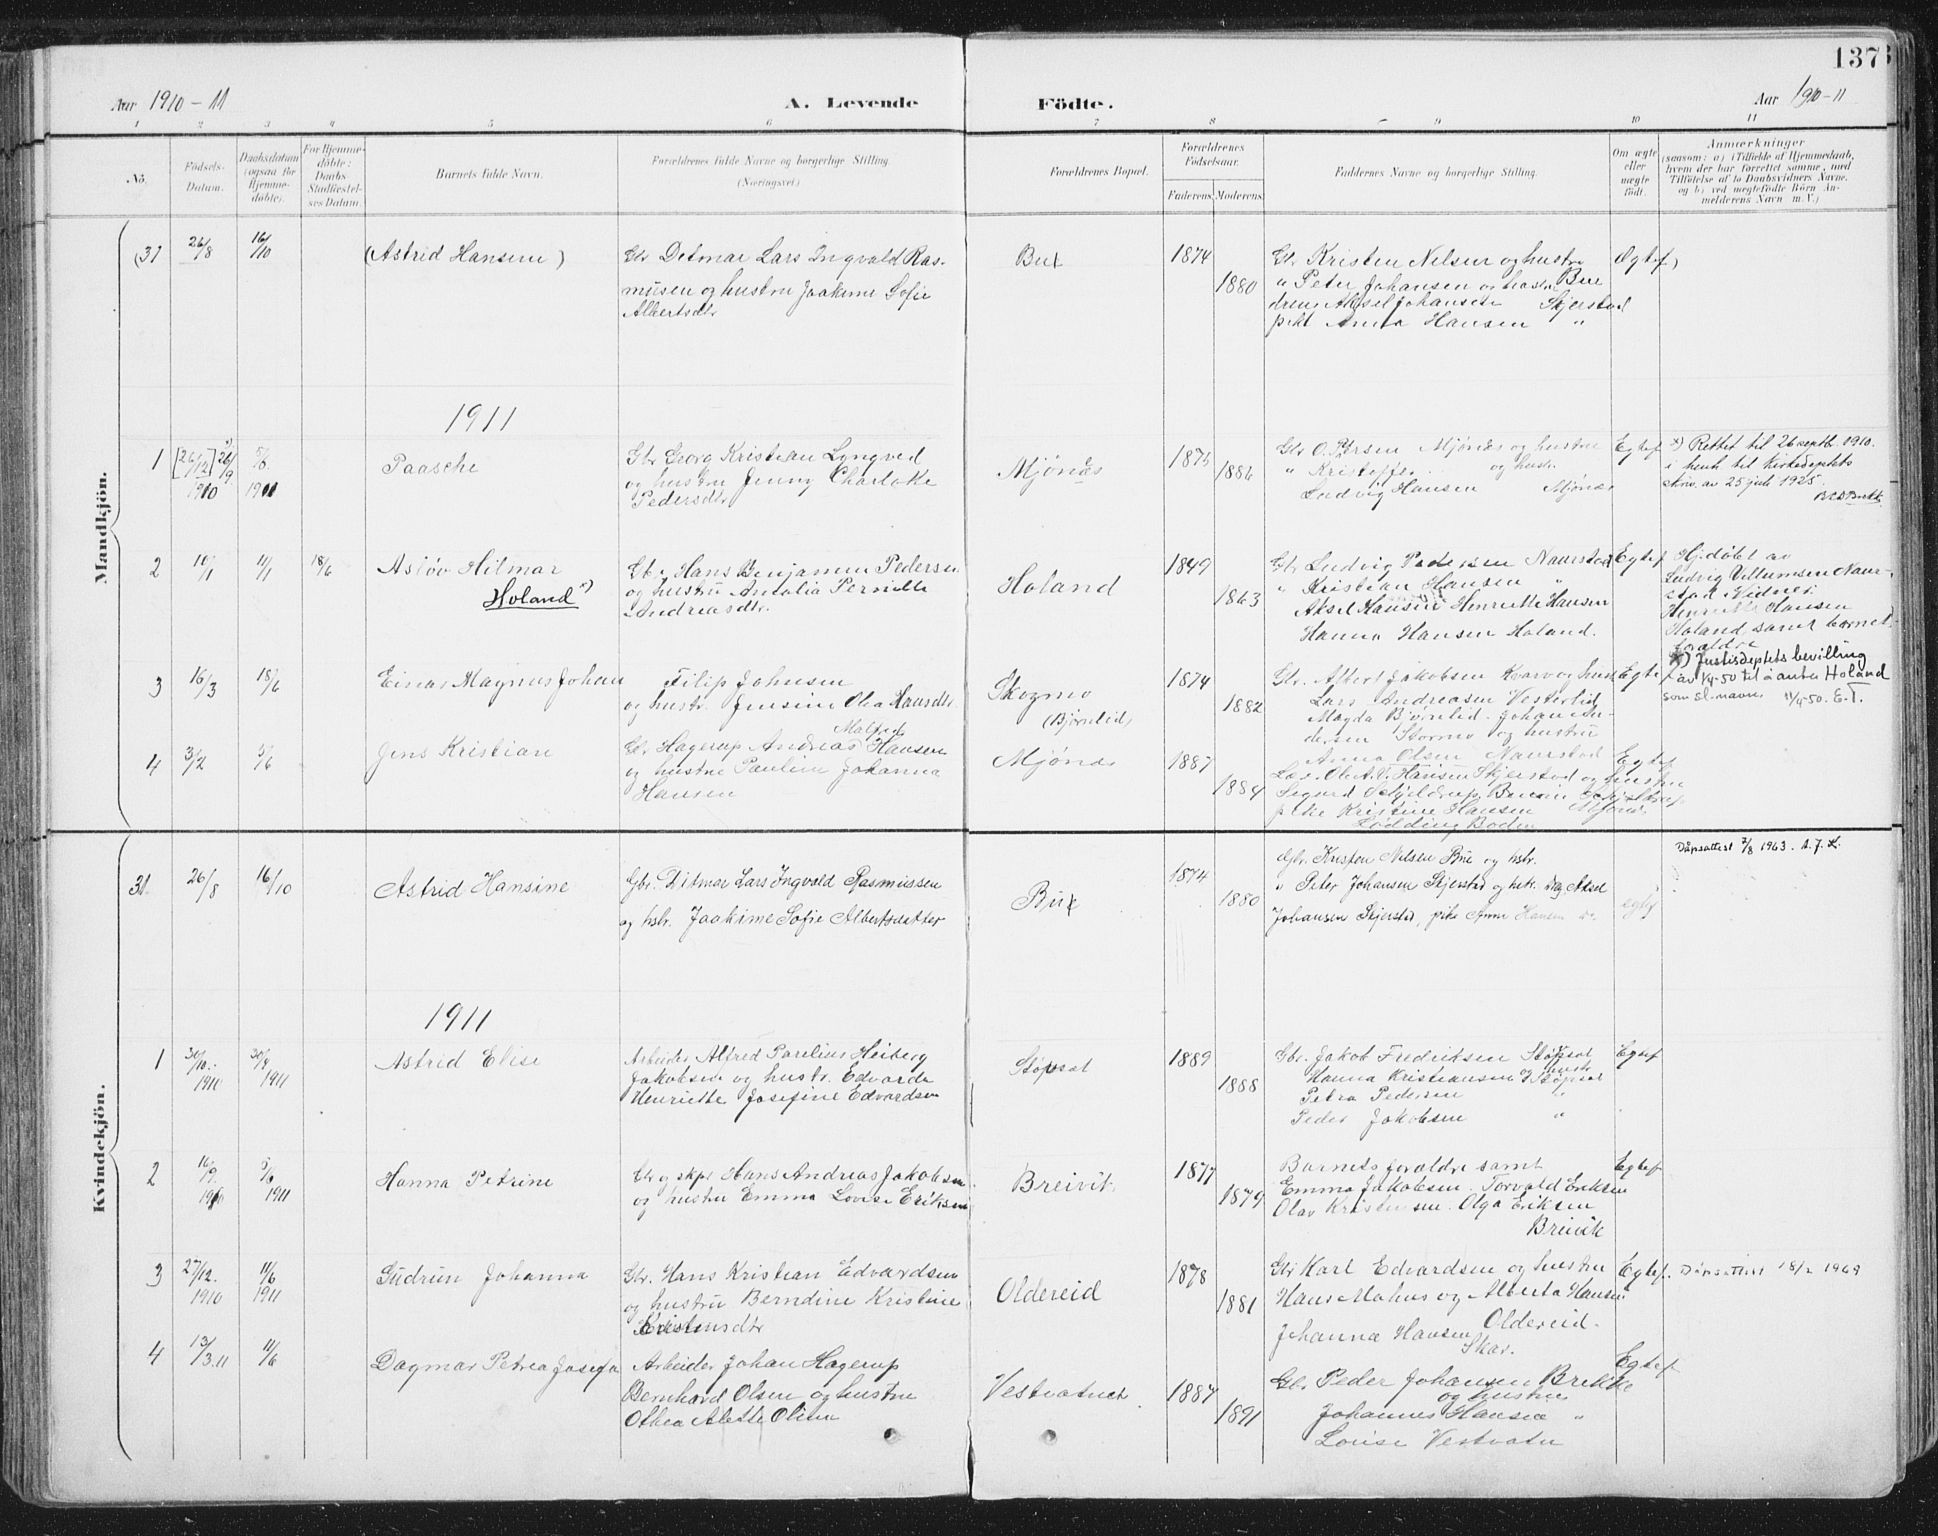 137
Aar 1910-11 A. Levende Födte. Aar 1910-11
1 2 3 4 5 6 7 8 9 10 11
No. Födsels-Datum. Daabsdatum (ogsaa för Hjemmedöbte). For Hjemmedöbte: Daabs-Stadfæstelses Datum. Barnets fulde Navn. Forældrenes fulde Navne og borgerlige Stilling. (Næringsvei) Forældrenes Bopæl. Forældrenes Födselsaar. Faderens Moderens Faddernes Navne og borgerlige Stilling. Om ægte eller uægte födt. Anmærkninger (saasom: a) i Tilfælde af Hjemmedaab, hvem der har forrettet samme, med Tilföielse af to Daabsvidners Navne. og b) ved uægtefödte Börn Anmelderens Navn m. V.)
Mandkjön.
(31 26/8 16/10 (Astrid Hansine) Gbr Ditmar Lars Ingvald Ras- 1874 Gbr Kristen Nilsen og hustru Ægtef)
musen og hustru Joakime Sofie 1880 " Peter Johansen og hustru Bue
Albertsdtr dreng Aksel Johansen Skjerstad
pike Anna Hansen "
1911
1 [26/12] 26/9 5/6 Paasche Gbr Georg Kristian Lyngved Mjönæs 1875 Gbr O. Petersen Mjönæs og hustru Egtef x) Rettet til 26 septb. 1910.
1910 1911 og hustru Jenny Charlotte 1886 " Kristoffer og hustr. i henh til kirkedeptets
Pedersdtr Ludvig Hansen Mjönæs skriv. av 25 juli 1925.
2 10/1 11/1 18/6 Aslöv Hilmar Gbr. Hans Benjamin Pedersen Holand 1849 Gbr Ludvig Pedersen Naurstad Egtef Hj.döbt av
Holand x) og hustru Antalia Pernille 1863 " Kristian Hansen " Ludvig Villumsen Naur-
Andreasdtr. Aksel Hansen Henriette Hansen stad Vidner
Hanna Hansen Holand. Henriette Hansen
Holand samt barnets
forældre
x) Justisdeptets bevilling
3 16/3 18/6 Einar Magnus Johan Filip Johnsen Skogmo 1874 Gbr. Albert Jakobsen Kvarv og hustr Egtef av 1/4-50 til å anta Holand
og hustr. Jensine Olea Hansdtr. (Björnlid) 1882 Lars Andreasen Vesterlid som sl.navn. 11/4-50. E.T.
Magda Björnlid. Johan An-
dersen Stormo og hustru
4 3/2 5/6 Jens Kristian Gbr Hagerup Andreas Malfred Hansen Mjönæs 1887 Anna Olsen Naurstad Egtef
og hustru Pauline Johanna 1884 Lær. Ole A. V. Hansen Skjerstad og hustru
Hansen Sigurd Schjeldrup
pike Kristine Hansen Mjönæs
Lödding Bodin
Kvindekjön.
31. 26/8 16/10 Astrid Hansine Gbr. Ditmar Lars Ingvald Rasmussen 1874 Gbr. Kristen Nilsen Bue og hstr. egtef Dåpsattest 7/8 1963.
og hstr. Joakime Sofie Albertsdatter 1880 " Peter Johansen Skjerstad og hstr. Aksel
Johansen Skjerstad, pike Anna Hansen
1911
1 30/10. 30/4 Astrid Elise Arbeider Alfred Parelius Heiberg Störset 1889 Gbr. Jakob Fredriksen Störset Egtef
1910 1911 Jakobsen og hustr. Edvarda 1888 Hanna Kristiansen og hustr
Henriette Josefine Edvardsen Petra Pedersen "
Peder Jakobsen "
2 16/9. 5/6 Hanna Petrine Gbr og skpr Hans Andreas Jakobsen Breivik 1877 Barnets forældre samt Egtef
1910 1911 og hustru Emma Lovise Eriksen 1879 Emma Jakobsen. Torvald Eriksen
Olav Kristensen. Olga Eriksen
Breivik
3 27/12. 11/6 Gudrun Johanna Gbr. Hans Kristian Edvardsen Oldereid 1878 Gbr Karl Edvardsen og hustru Egtef. Dåpsattest 18/2 1969
1910 1911 og hustru Berndine Kristine 1881 Hans Mahus og Alberta Hansen
Kristensdtr Johanna Hansen Oldereid.
Skar.
4 13/3.11 11/6 Dagmar Petrea Josefa Arbeider Johan Hagerup Vestvatnet 1887 Gbr Peder Johansen Brekke Egtef
Bernhard Olsen og hustru 1891 og hustru
Othea Alette Olsen Johannes Hansen "
Lovise Vestvatn